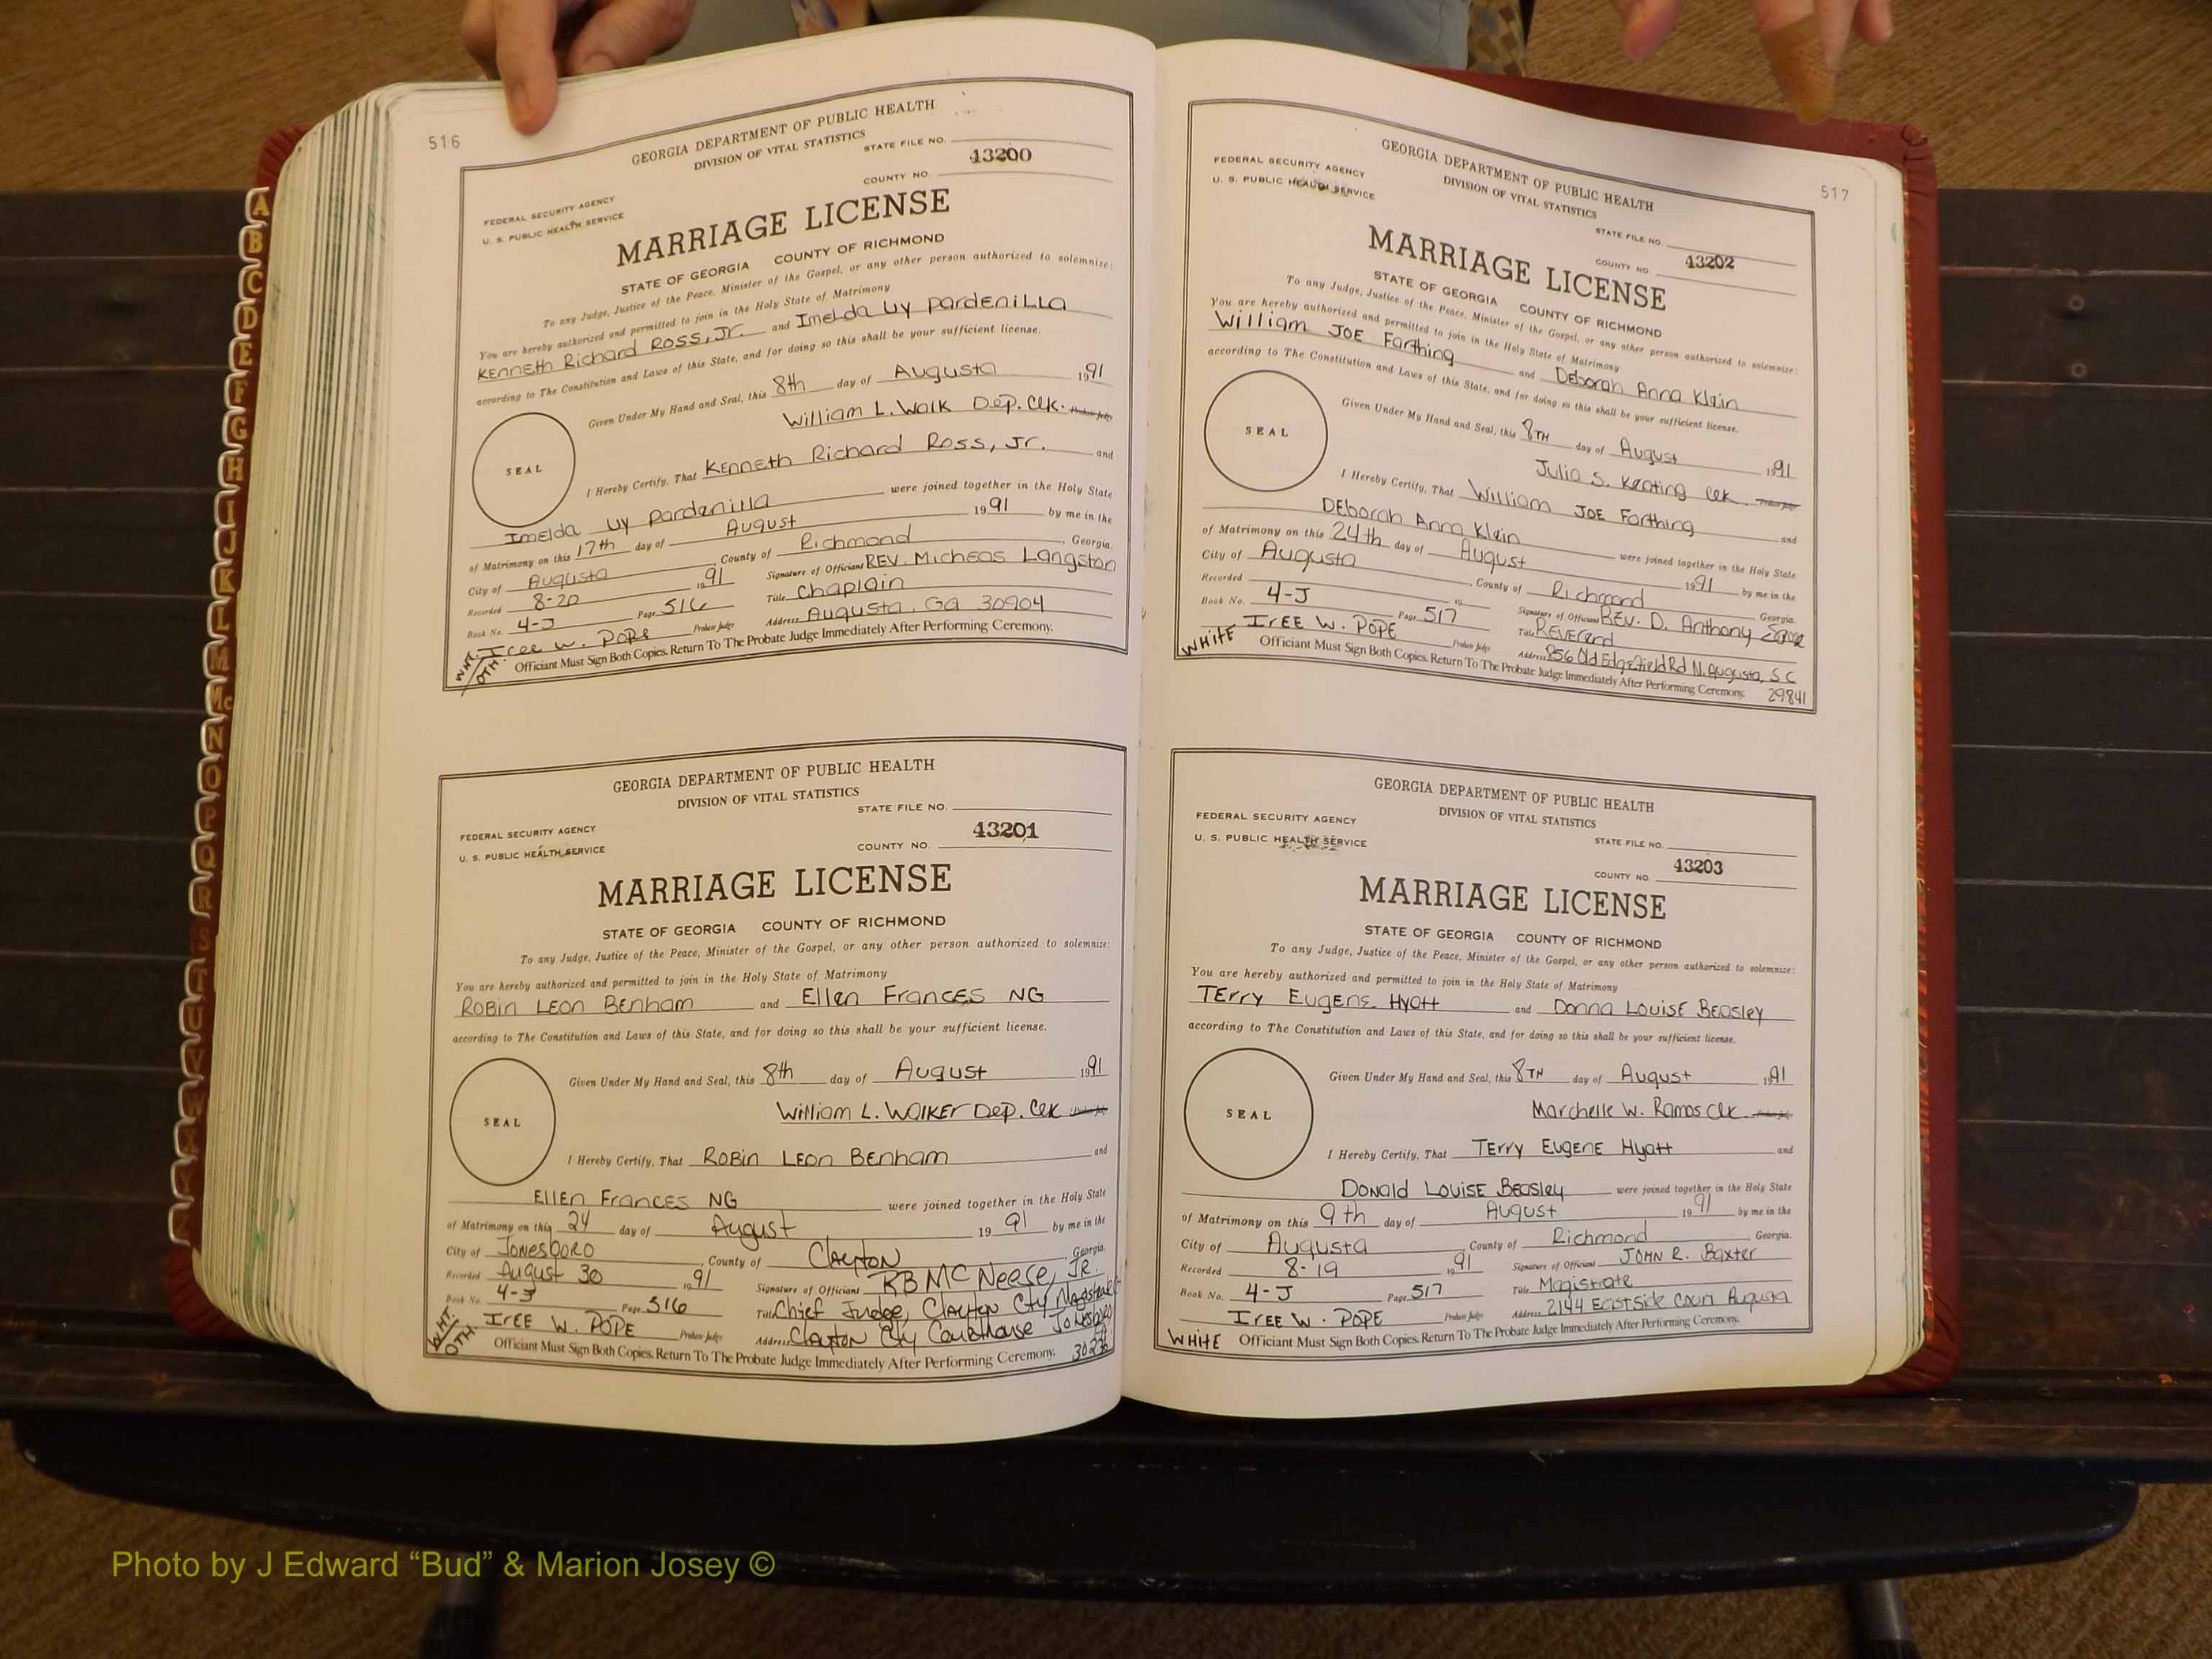 516
GEORGIA DEPARTMENT OF PUBLIC HEALTH
DIVISION OF VITAL STATISTICS
STATE FILE NO.
43200
COUNTY NO.
FEDERAL SECURITY AGENCY
U. S. PUBLIC HEALTH SERVICE
MARRIAGE LICENSE
STATE OF GEORGIA COUNTY OF RICHMOND
To any Judge, Justice of the Peace, Minister of the Gospel, or any other person authorized to solemnize:
You are hereby authorized and permitted to join in the Holy State of Matrimony
Kenneth Richard Ross, Jr. and Imelda Uy Pardenilla
according to The Constitution and Laws of this State, and for doing so this shall be your sufficient license.
Given Under My Hand and Seal, this 8th day of Augusta 1991
William L. Walk Dep. Clk. Probate Judge
SEAL
I Hereby Certify, That Kenneth Richard Ross, Jr. and
Imelda Uy Pardenilla were joined together in the Holy State
of Matrimony on this 17th day of August 1991 by me in the
City of Augusta, County of Richmond, Georgia.
Recorded 8-20 1991 Signature of Officiant Rev. Micheas Langston
Book No. 4-J Page 516 Title Chaplain
Iree W. Pope Probate Judge Address Augusta, GA 30904
WHT. OTH. Officiant Must Sign Both Copies. Return To The Probate Judge Immediately After Performing Ceremony.
GEORGIA DEPARTMENT OF PUBLIC HEALTH
DIVISION OF VITAL STATISTICS
STATE FILE NO.
43201
COUNTY NO.
FEDERAL SECURITY AGENCY
U. S. PUBLIC HEALTH SERVICE
MARRIAGE LICENSE
STATE OF GEORGIA COUNTY OF RICHMOND
To any Judge, Justice of the Peace, Minister of the Gospel, or any other person authorized to solemnize:
You are hereby authorized and permitted to join in the Holy State of Matrimony
Robin Leon Benham and Ellen Frances NG
according to The Constitution and Laws of this State, and for doing so this shall be your sufficient license.
Given Under My Hand and Seal, this 8th day of August 1991
William L. Walker Dep. Clk Probate Judge
SEAL
I Hereby Certify, That Robin Leon Benham and
Ellen Frances NG were joined together in the Holy State
of Matrimony on this 24 day of August 1991 by me in the
City of Jonesboro, County of Clayton, Georgia.
Recorded August 30 1991 Signature of Officiant RB McNeese, JR.
Book No. 4-J Page 516 Title Chief Judge, Clayton Cty Magistrate
Iree W. Pope Probate Judge Address Clayton Cty Courthouse Jonesboro
WHT. OTH. Officiant Must Sign Both Copies. Return To The Probate Judge Immediately After Performing Ceremony. 30236
517
GEORGIA DEPARTMENT OF PUBLIC HEALTH
DIVISION OF VITAL STATISTICS
FEDERAL SECURITY AGENCY
U. S. PUBLIC HEALTH SERVICE
STATE FILE NO.
43202
COUNTY NO.
MARRIAGE LICENSE
STATE OF GEORGIA COUNTY OF RICHMOND
To any Judge, Justice of the Peace, Minister of the Gospel, or any other person authorized to solemnize:
You are hereby authorized and permitted to join in the Holy State of Matrimony
William Joe Farthing and Deborah Anna Klein
according to The Constitution and Laws of this State, and for doing so this shall be your sufficient license.
Given Under My Hand and Seal, this 8TH day of August 1991
Julia S. Keating Clk Probate Judge
SEAL
I Hereby Certify, That William Joe Farthing and
Deborah Anna Klein were joined together in the Holy State
of Matrimony on this 24th day of August 1991 by me in the
City of Augusta, County of Richmond Georgia.
Recorded 19 Signature of Officiant Rev. D. Anthony
Book No. 4-J Page 517 Title Reverend
Iree W. Pope Probate Judge Address 856 Old Edgefield Rd N. Augusta, S C
WHITE Officiant Must Sign Both Copies. Return To The Probate Judge Immediately After Performing Ceremony. 29841
GEORGIA DEPARTMENT OF PUBLIC HEALTH
DIVISION OF VITAL STATISTICS
FEDERAL SECURITY AGENCY
U. S. PUBLIC HEALTH SERVICE
STATE FILE NO.
43203
COUNTY NO.
MARRIAGE LICENSE
STATE OF GEORGIA COUNTY OF RICHMOND
To any Judge, Justice of the Peace, Minister of the Gospel, or any other person authorized to solemnize:
You are hereby authorized and permitted to join in the Holy State of Matrimony
Terry Eugene Hyatt and Donna Louise Beasley
according to The Constitution and Laws of this State, and for doing so this shall be your sufficient license.
Given Under My Hand and Seal, this 8TH day of August 1991
Marchelle W. Ramos Clk Probate Judge
SEAL
I Hereby Certify, That Terry Eugene Hyatt and
Donald Louise Beasley were joined together in the Holy State
of Matrimony on this 9th day of August 1991 by me in the
City of Augusta, County of Richmond Georgia.
Recorded 8-19 1991 Signature of Officiant John R. Baxter
Book No. 4-J Page 517 Title Magistrate
Iree W. Pope Probate Judge Address 2144 Eastside Court Augusta
WHITE Officiant Must Sign Both Copies. Return To The Probate Judge Immediately After Performing Ceremony.
A
B
C
D
E
F
G
H
I
J
K
L
M
Mc
N
O
P
Q
R
S
T
U
V
W
Photo by J Edward “Bud” & Marion Josey ©